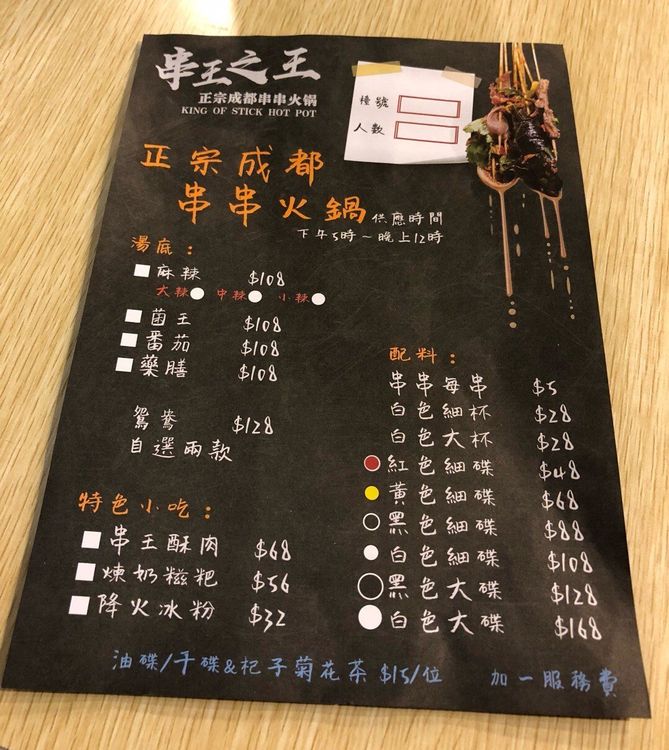 串王之王
正宗成都串串火锅
KING OF STICK HOT POT
檯號
人數
正宗成都
串串火鍋
供應時間
下午5時～晚上12時
湯底：
麻辣 $108
大辣 中辣 小辣
菌王 $108
番茄 $108
藥膳 $108
鴛鴦 $128
自選兩款
特色小吃：
串王酥肉 $68
煉奶糍粑 $56
降火冰粉 $32
配料：
串串每串 $5
白色細杯 $28
白色大杯 $28
紅色細碟 $48
黃色細碟 $68
黑色細碟 $88
白色細碟 $108
黑色大碟 $128
白色大碟 $168
油碟/干碟&杞子菊花茶 $15/位
加一服務費